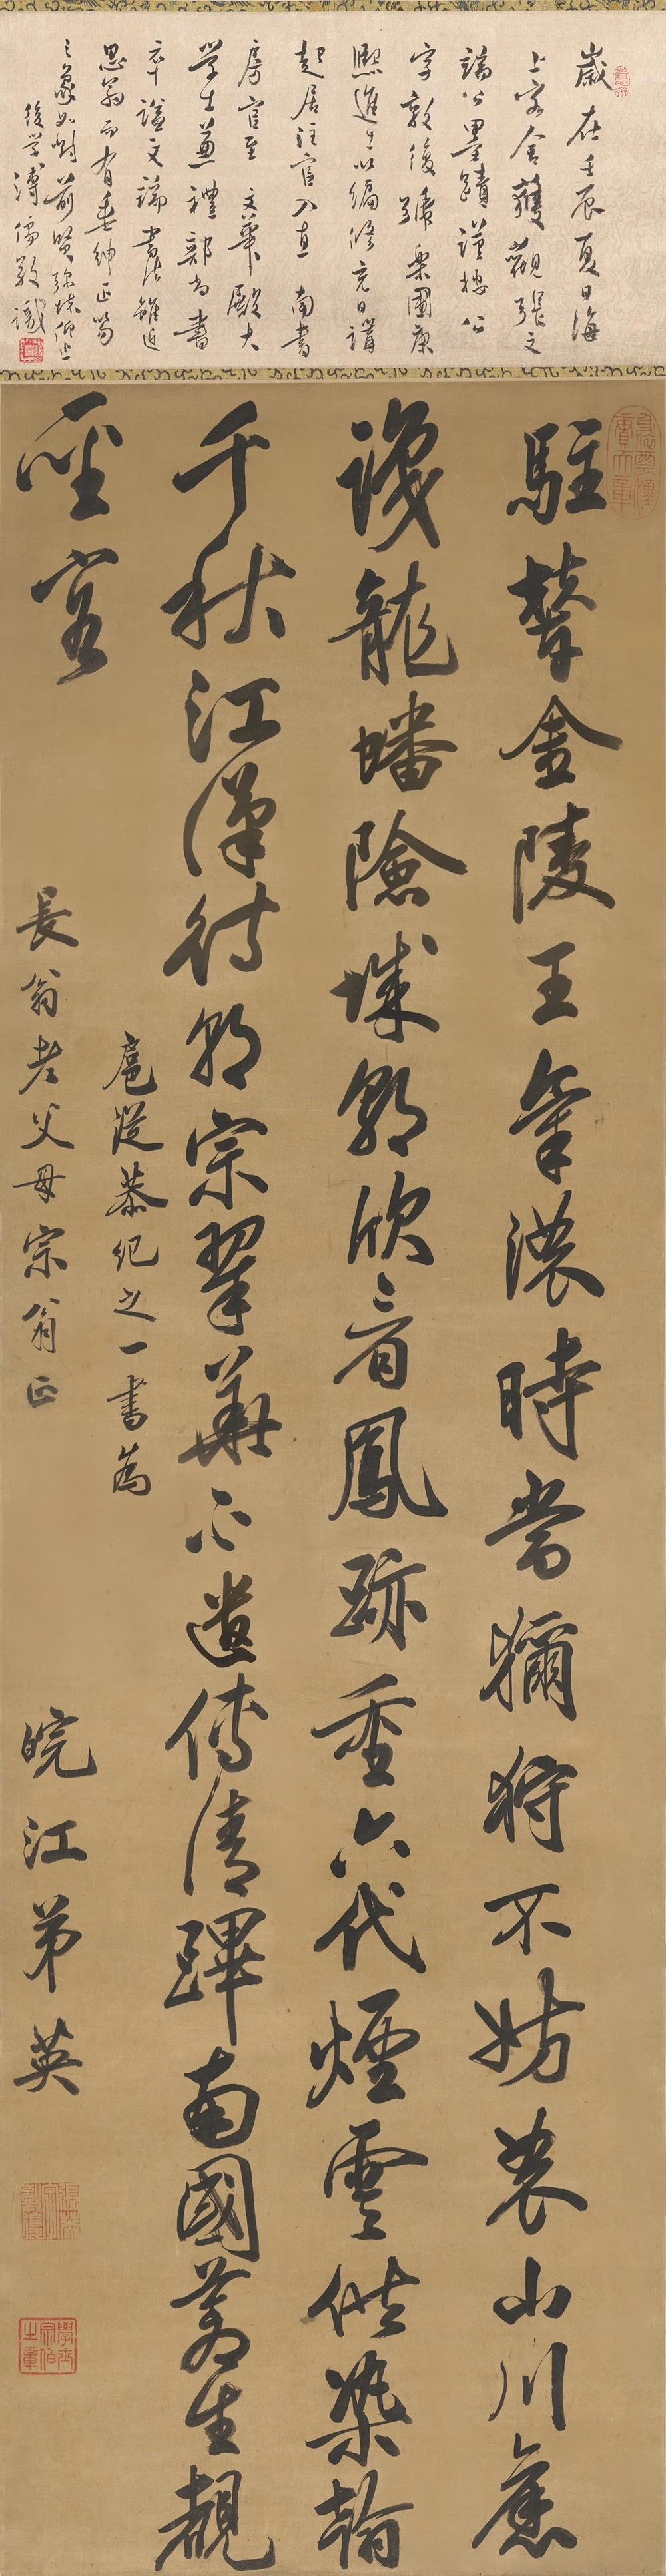 歲在壬辰夏日海
上寓舍獲觀張文
端公墨蹟謹按公
字敦復號樂圃康
熙進士以編修充日講
起居注官入直南書
房官至文華殿大
學士兼禮部尚書
卒謚文端書法雖近
思翁而有垂紳正笏
之象如對前賢彌怵仰止
後學溥儒敬識
駐輦金陵王氣濃時當獮狩不妨農山川舊
識龍蟠險城郭欣看鳳跡重六代煙雲供染翰
千秋江漢待朝宗翠華正遣傳清蹕南國蒼生覩
聖容
扈從恭紀之一書為
長翁老父母宗翁正
皖江弟英